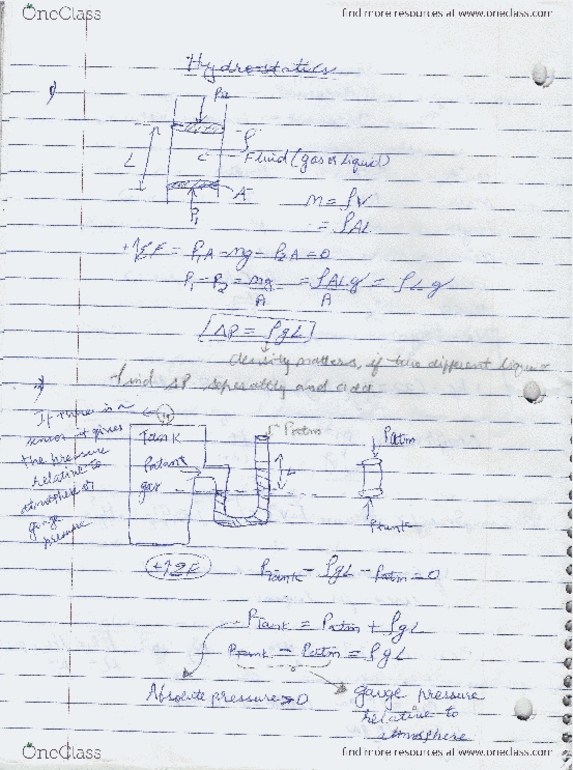 OneClass
find more resources at www.oneclass.com
Hydrostatics
1)
P2
ρ
L
Fluid (gas or liquid)
A
P1
m = ρV
= ρAL
+↑ΣF = P1A - mg - P2A = 0
P1 - P2 = mg/A = ρALg/A = ρLg
[ΔP = ρgL]
density matters, if two different liquids
find ΔP seperatly and add
2)
If there is a
sensor it gives
the pressure
relative to
atmosphere or
gauge
pressure
Tank
gas
Patm
L
Patm
Ptank
+↑ΣF
Ptank - ρgL - Patm = 0
Ptank = Patm + ρgL
Ptank - Patm = ρgL
Absolute pressure > 0
gauge pressure
relative to
atmosphere
OneClass
find more resources at www.oneclass.com